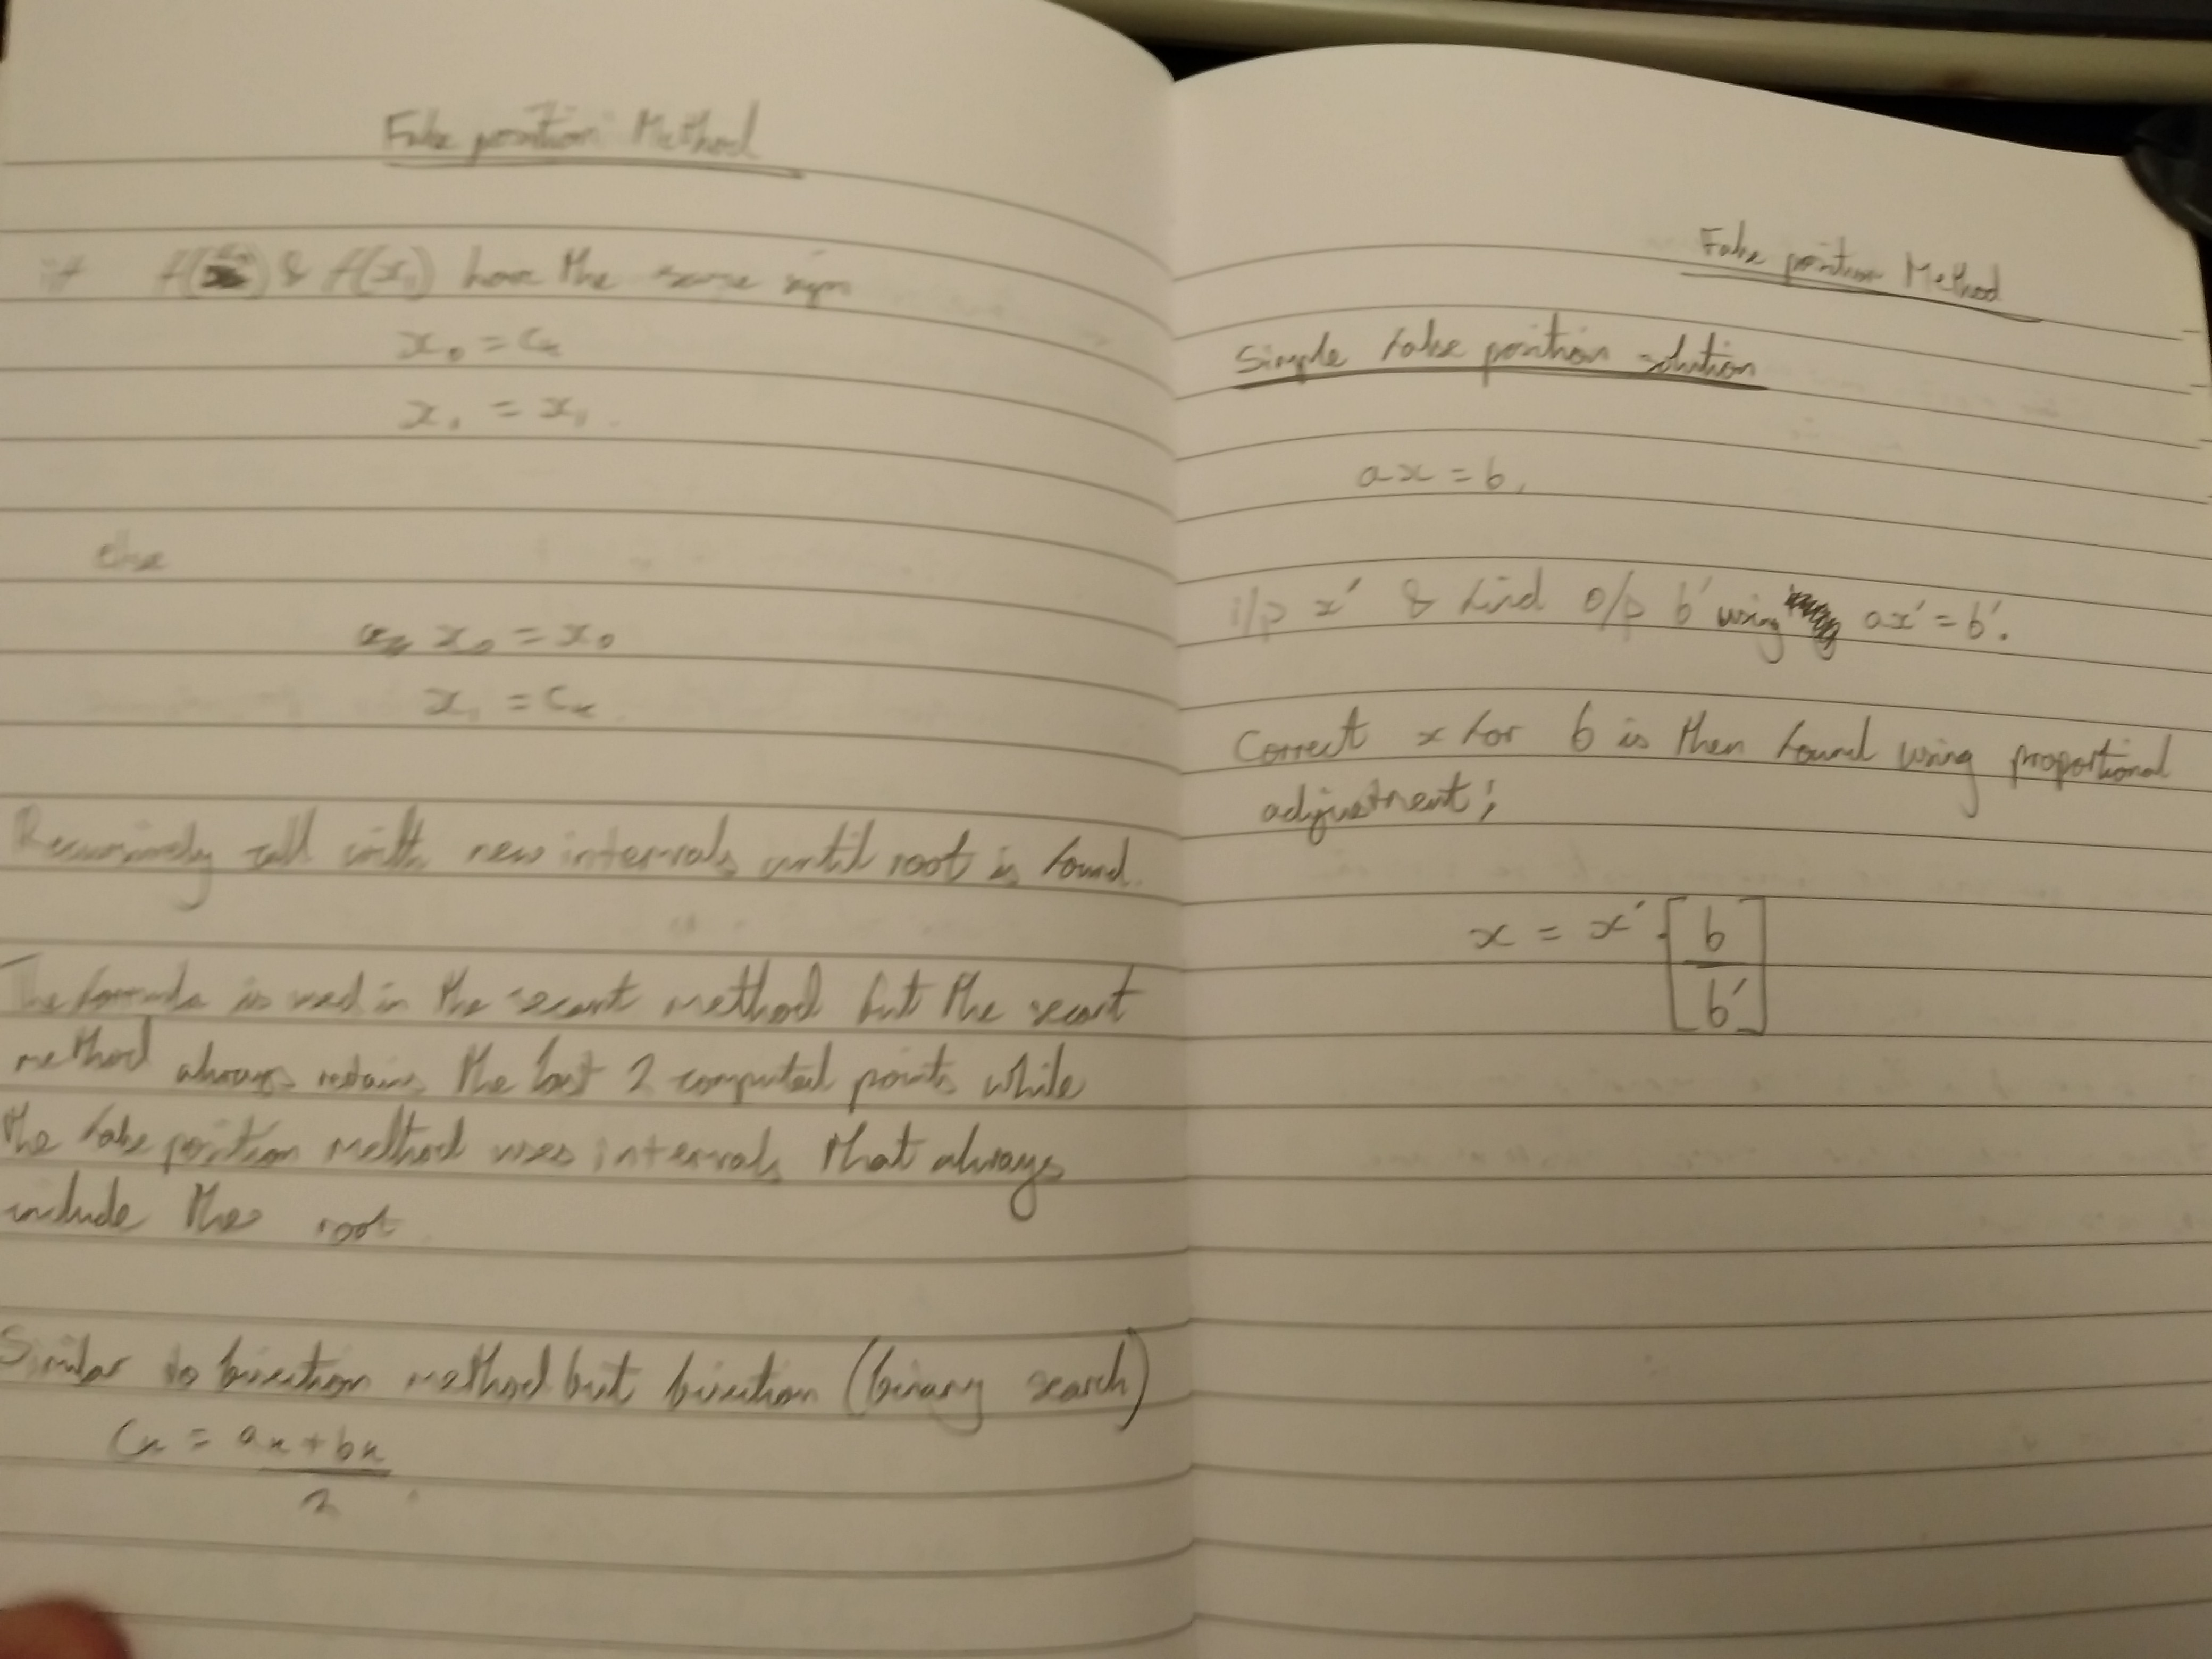 False position Method
if f( ) & f(x₁) have the same sign
x₀ = cₖ
x₁ = x₁.
else
x₀ = x₀
x₁ = cₖ
Recursively call with new intervals until root is found.
The formula is used in the secant method but the secant
method always retains the last 2 computed points while
the false position method uses intervals that always
include the root.
Similar to bisection method but bisection (binary search)
cₖ = aₖ + bₖ
2
False position Method
Simple false position solution
ax = b,
i/p x' & find o/p b' using ax' = b'.
Correct x for b is then found using proportional
adjustment;
x = x' . [b
b']